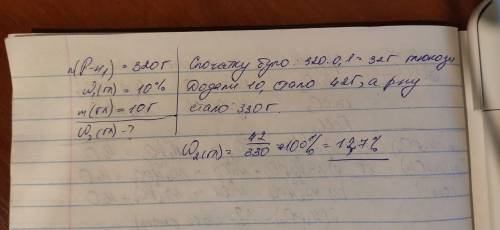 m(р-н₁) = 320г
ω₁(гл) = 10%
m(гл) = 10г
ω₂(гл) - ?
Спочатку було: 320·0,1 = 32г глюкози
Додали 10, стало 42г, а р-ну
стало 330г.
ω₂(гл) = 42/330 · 100% = 12,7%